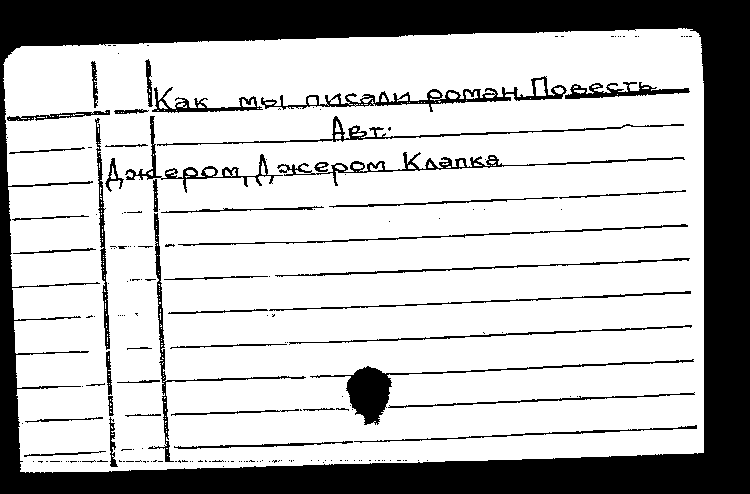 Как мы писали роман. Повесть
Авт.:
Джером, Джером Клапка